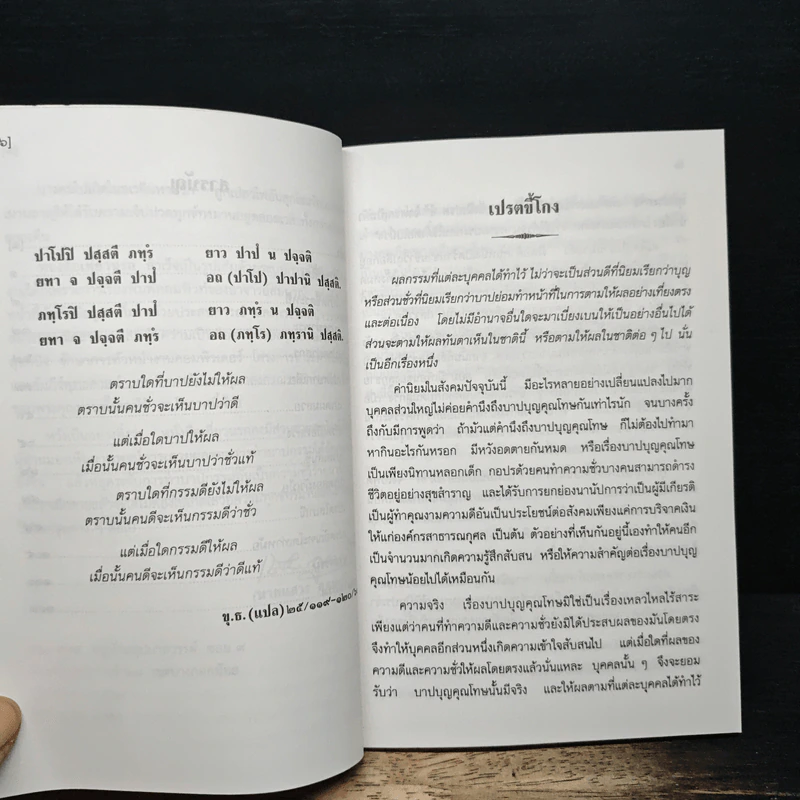 ๖]
ปาโปปิ ปสฺสตี ภทฺรํ ยาว ปาปํ น ปจฺจติ
ยทา จ ปจฺจตี ปาปํ อถ (ปาโป) ปาปานิ ปสฺสติ.
ภทฺโรปิ ปสฺสตี ปาปํ ยาว ภทฺรํ น ปจฺจติ
ยทา จ ปจฺจตี ภทฺรํ อถ (ภทฺโร) ภทฺรานิ ปสฺสติ.
ตราบใดที่บาปยังไม่ให้ผล
ตราบนั้นคนชั่วจะเห็นบาปว่าดี
แต่เมื่อใดบาปให้ผล
เมื่อนั้นคนชั่วจะเห็นบาปว่าชั่วแท้
ตราบใดที่กรรมดียังไม่ให้ผล
ตราบนั้นคนดีจะเห็นกรรมดีว่าชั่ว
แต่เมื่อใดกรรมดีให้ผล
เมื่อนั้นคนดีจะเห็นกรรมดีว่าดีแท้
ขุ.ธ. (แปล) ๒๕/๑๑๙-๑๒๐/
เปรตขี้โกง
ผลกรรมที่แต่ละบุคคลได้ทำไว้ ไม่ว่าจะเป็นส่วนดีที่นิยมเรียกว่าบุญ
หรือส่วนชั่วที่นิยมเรียกว่าบาปย่อมทำหน้าที่ในการตามให้ผลอย่างเที่ยงตรง
และต่อเนื่อง โดยไม่มีอำนาจอื่นใดจะมาเบี่ยงเบนให้เป็นอย่างอื่นไปได้
ส่วนจะตามให้ผลทันตาเห็นในชาตินี้ หรือตามให้ผลในชาติต่อ ๆ ไป นั่น
เป็นอีกเรื่องหนึ่ง
ค่านิยมในสังคมปัจจุบันนี้ มีอะไรหลายอย่างเปลี่ยนแปลงไปมาก
บุคคลส่วนใหญ่ไม่ค่อยคำนึงถึงบาปบุญคุณโทษกันเท่าไรนัก จนบางครั้ง
ถึงกับมีการพูดว่า ถ้ามัวแต่คำนึงถึงบาปบุญคุณโทษ ก็ไม่ต้องไปทำมา
หากินอะไรกันหรอก มีหวังอดตายกันหมด หรือเรื่องบาปบุญคุณโทษ
เป็นเพียงนิทานหลอกเด็ก กอปรด้วยคนทำความชั่วบางคนสามารถดำรง
ชีวิตอยู่อย่างสุขสำราญ และได้รับการยกย่องนานัปการว่าเป็นผู้มีเกียรติ
เป็นผู้ทำคุณงามความดีอันเป็นประโยชน์ต่อสังคมเพียงแค่การบริจาคเงิน
ให้แก่องค์กรสาธารณกุศล เป็นต้น ตัวอย่างที่เห็นกันอยู่นี้เองทำให้คนอีก
เป็นจำนวนมากเกิดความรู้สึกสับสน หรือให้ความสำคัญต่อเรื่องบาปบุญ
คุณโทษน้อยไปได้เหมือนกัน
ความจริง เรื่องบาปบุญคุณโทษมิใช่เป็นเรื่องเหลวไหลไร้สาระ
เพียงแต่ว่าคนที่ทำความดีและความชั่วยังมิได้ประสบผลของมันโดยตรง
จึงทำให้บุคคลอีกส่วนหนึ่งเกิดความเข้าใจสับสนไป แต่เมื่อใดที่ผลของ
ความดีและความชั่วให้ผลโดยตรงแล้วนั่นแหละ บุคคลนั้น ๆ จึงจะยอม
รับว่า บาปบุญคุณโทษนั้นมีจริง และให้ผลตามที่แต่ละบุคคลได้ทำไว้